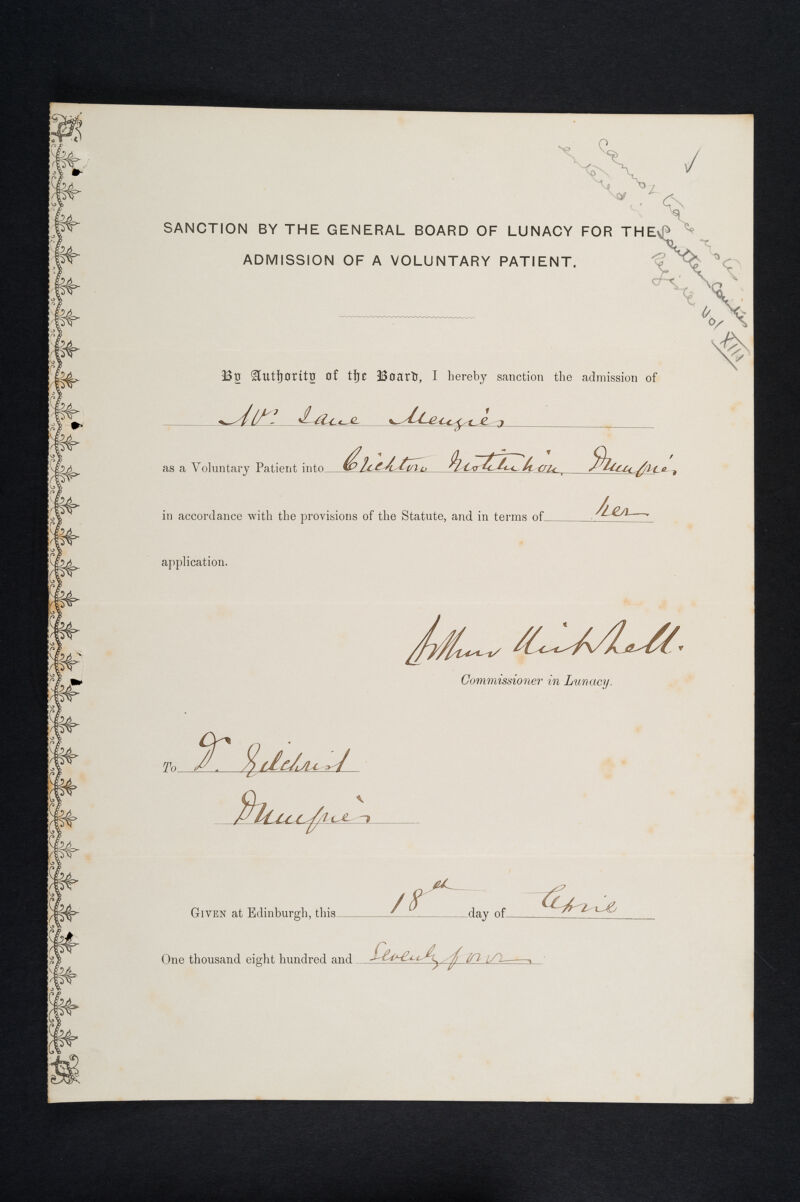 Cannot trace note
entered in Southern Counties
Register Vol XIII
SANCTION BY THE GENERAL BOARD OF LUNACY FOR THE
ADMISSION OF A VOLUNTARY PATIENT.
By Authority of the Board, I hereby sanction the admission of
Mrs Jane Menzies
as a Voluntary Patient into Crichton Institution, Dumfries
in accordance with the provisions of the Statute, and in terms of her
application.
Arthur Mitchell.
Commissioner in Lunacy.
To Dr. Gilchrist
Dumfries
GIVEN at Edinburgh, this 18th day of April
One thousand eight hundred and Seventy four